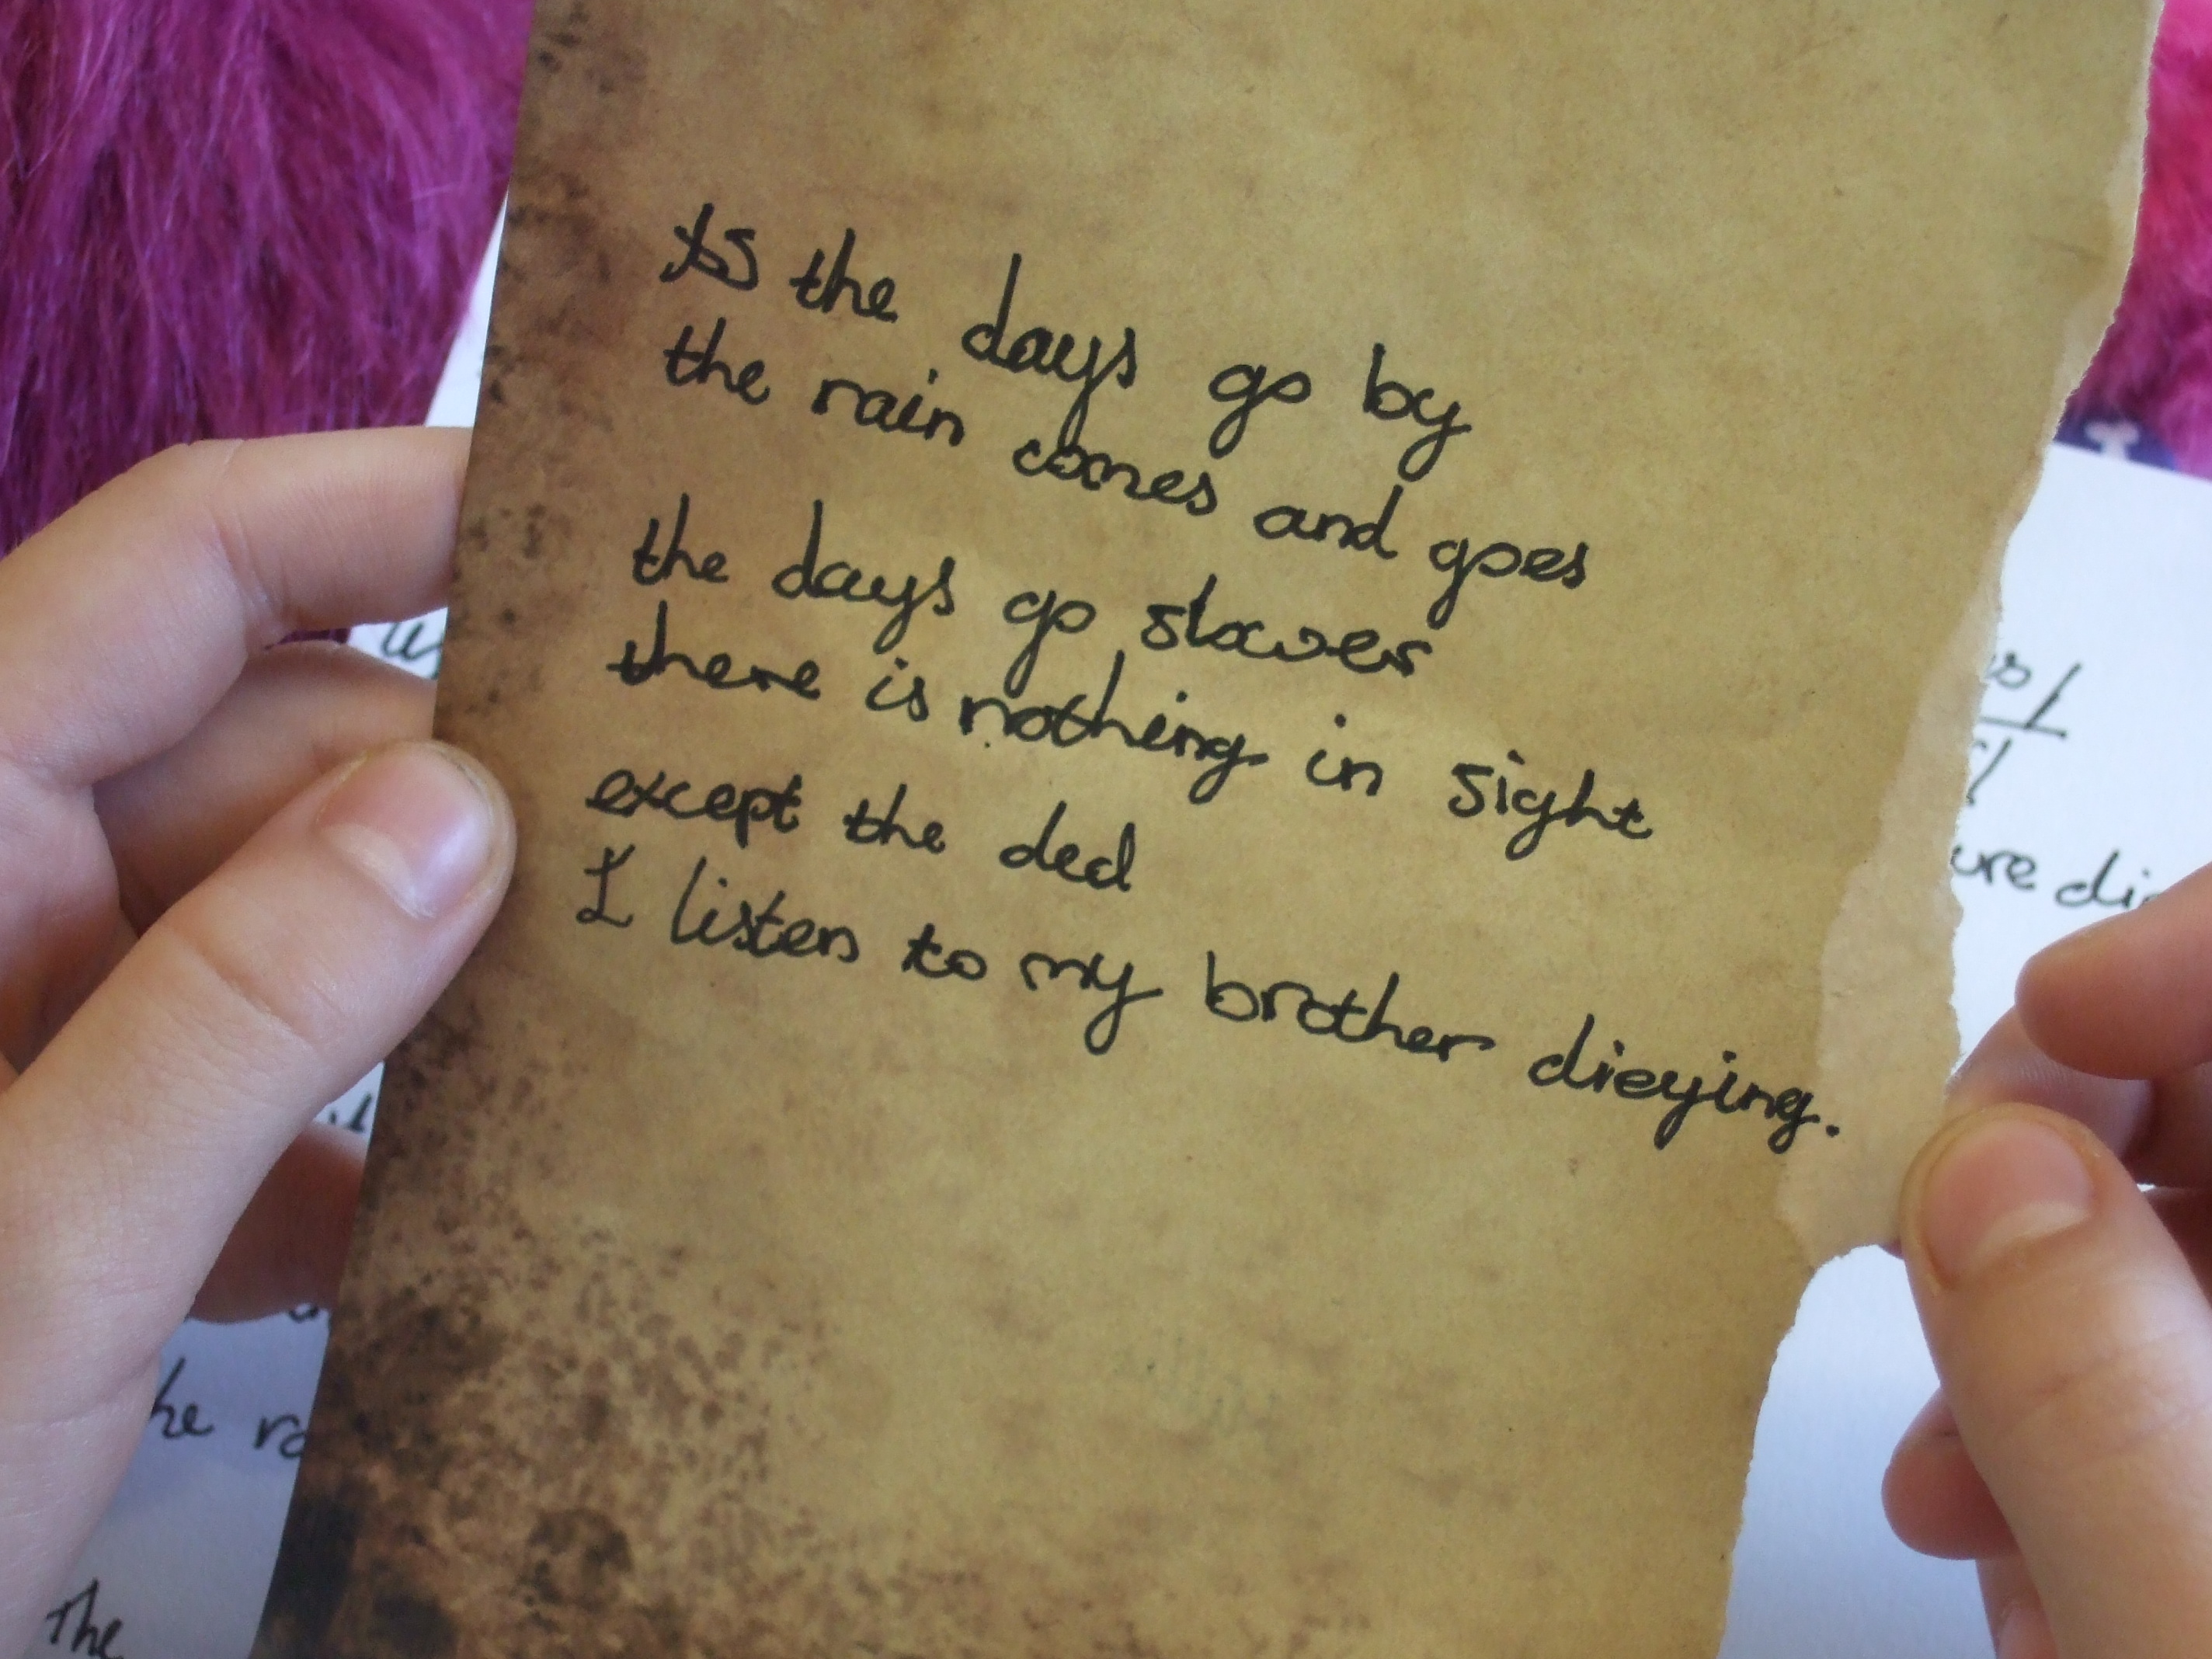 As the days go by
the rain comes and goes
the days go slower
there is nothing in sight
except the ded
I listen to my brother dieying.
ure
he
The